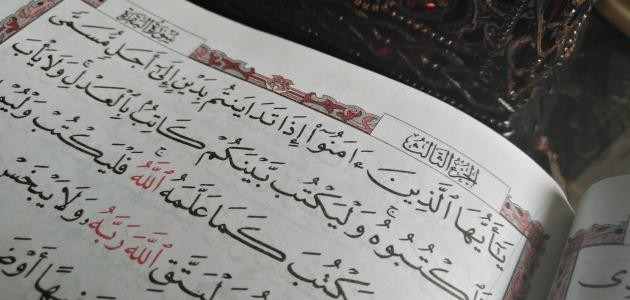 سورة البقرة
الجزء الثالث
يَٰٓأَيُّهَا ٱلَّذِينَ ءَامَنُوٓا۟ إِذَا تَدَايَنتُم بِدَيْنٍ إِلَىٰٓ أَجَلٍ مُّسَمًّى
فَٱكْتُبُوهُ ۚ وَلْيَكْتُب بَّيْنَكُمْ كَاتِبٌۢ بِٱلْعَدْلِ ۚ وَلَا يَأْبَ
يَكْتُبَ كَمَا عَلَّمَهُ ٱللَّهُ ۚ فَلْيَكْتُبْ
ٱللَّهَ رَبَّهُۥ وَلَا يَبْخَسْ